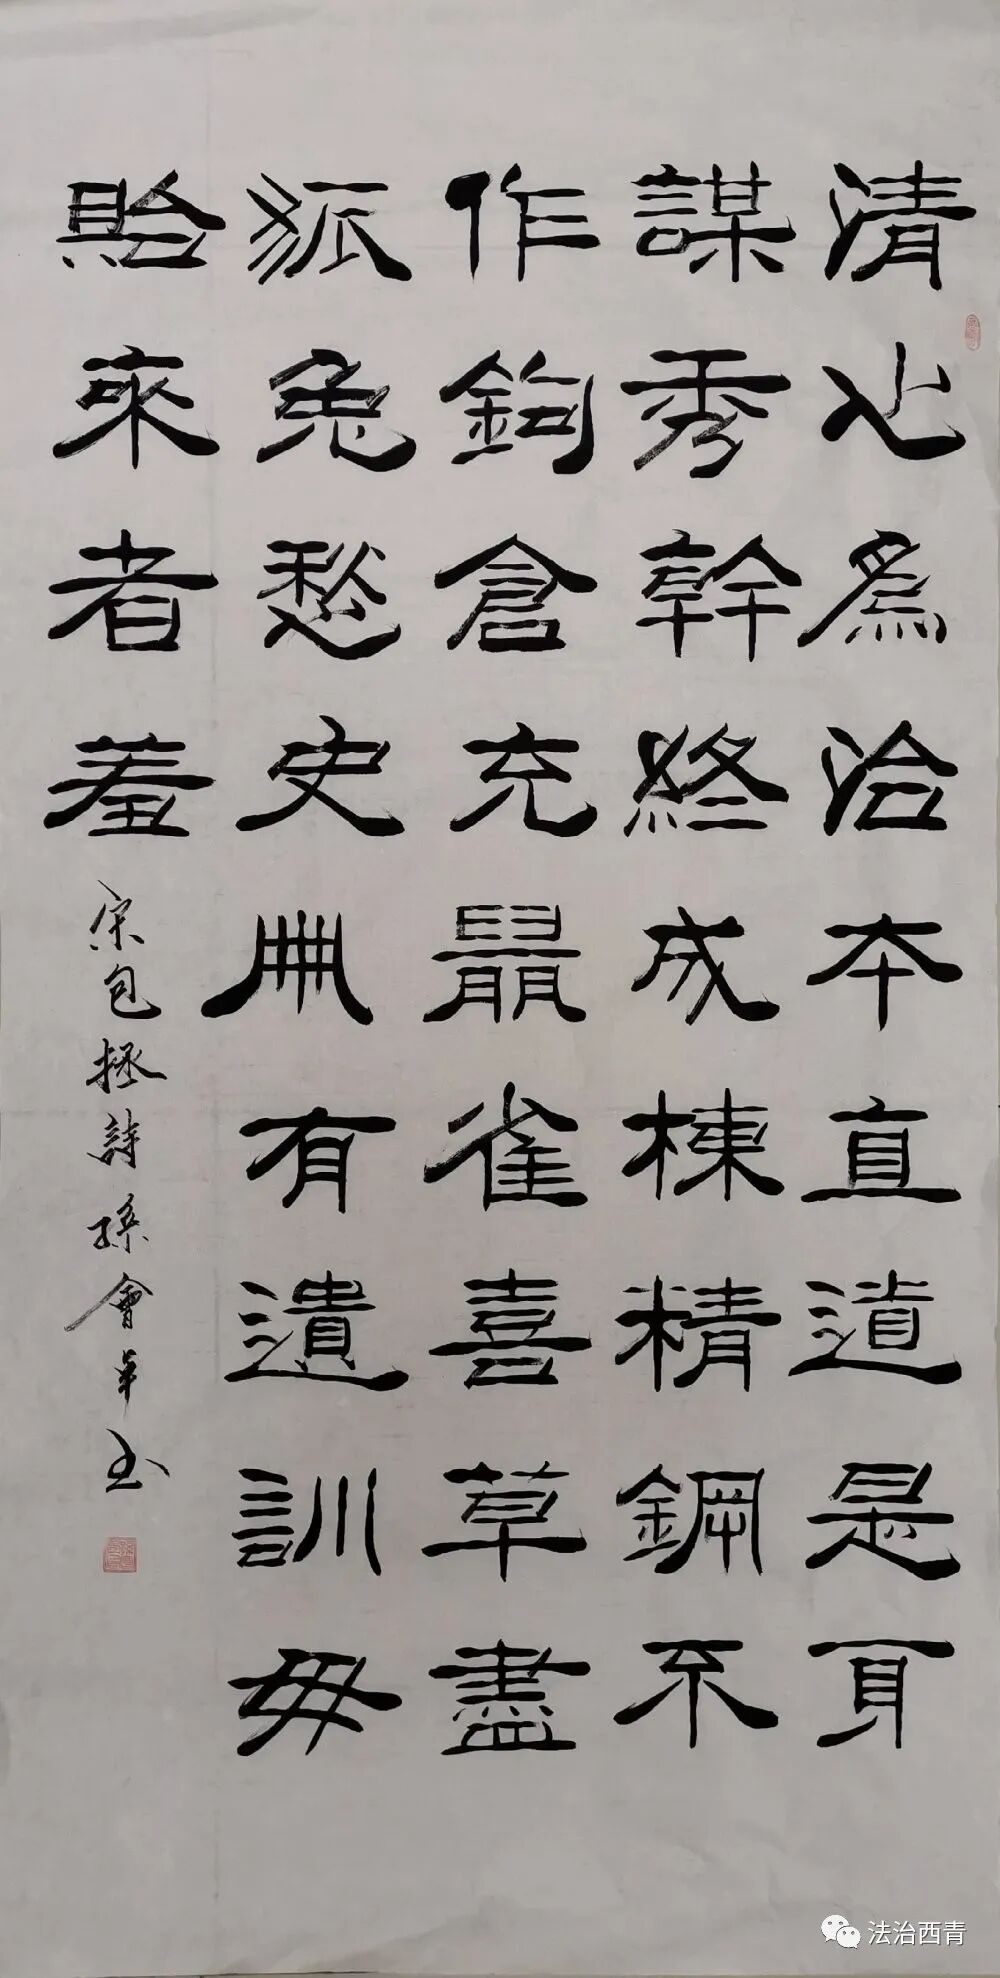 清心爲治本直道是身
謀秀幹終成棟精鋼不
作鉤倉充鼠雀喜草盡
狐兔愁史冊有遺訓毋
貽來者羞
宋包拯詩孫會书
法治西青